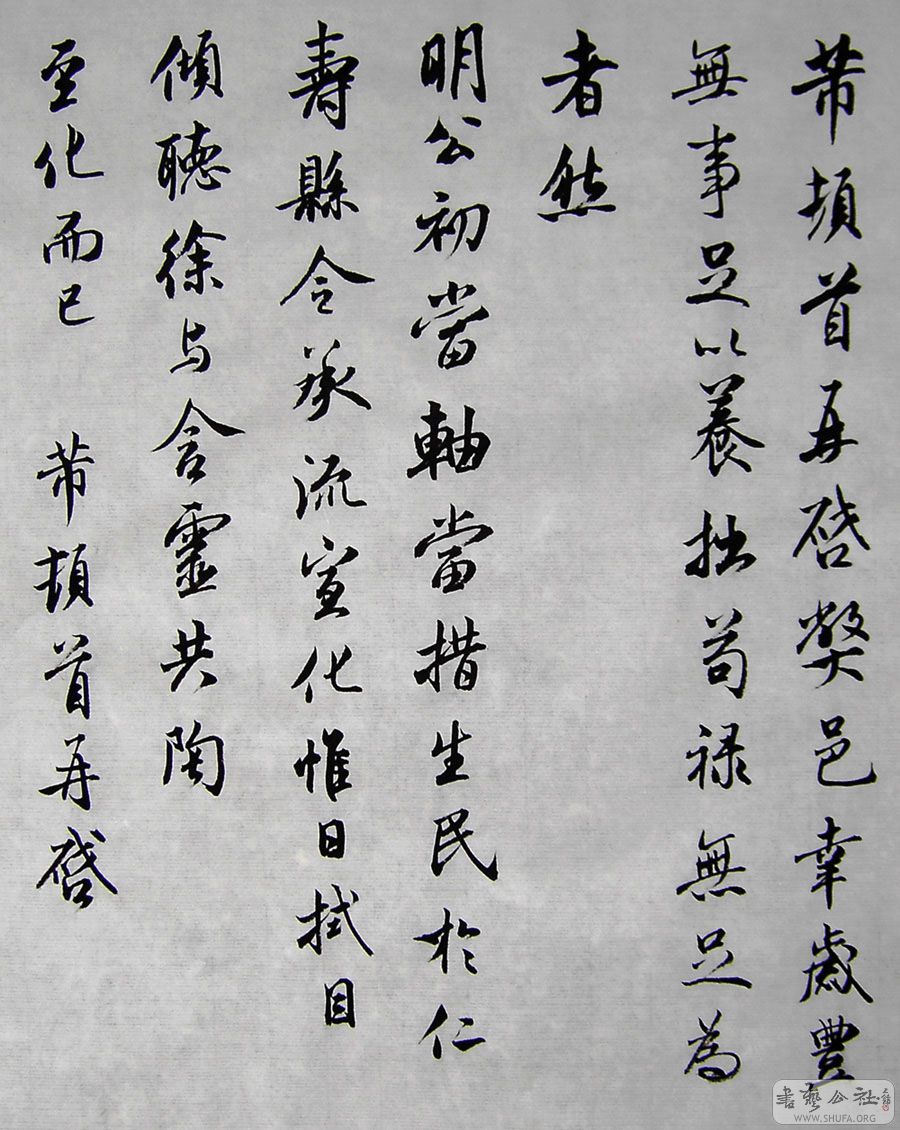 芾頓首再啓弊邑幸歲豐
無事足以養拙苟禄無足為
者然
明公初當軸當措生民於仁
壽縣令承流宣化惟日拭目
傾聽徐与含靈共陶
至化而已 芾頓首再啓
書藝公社
WWW.SHUFA.ORG